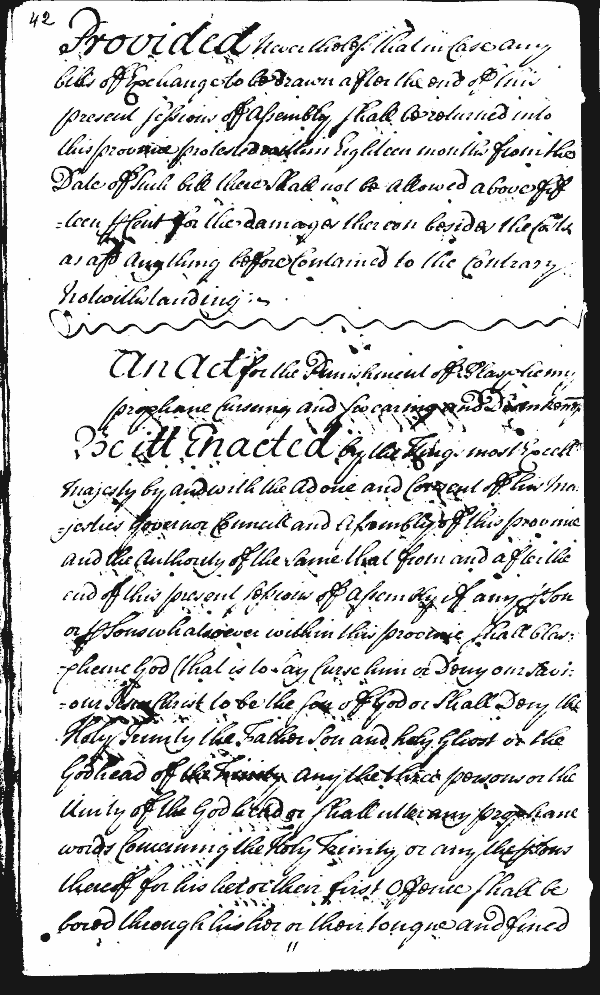 42
Provided Nevertheless that in Case any
bills of Exchange to be drawn after the end of this
present sessions of Assembly shall be returned into
this province protested within Eighteen months from the
Date of Such bill there Shall not be allowed above fif
=teen ꝑ Cent for the damages thereon besides the Costs
as afd any thing before Contained to the Contrary
Notwithstanding
An Act for the Punishment of Blasphemy
prophane Cursing and Swearing and Drunkenness
Be itt Enacted by the Kings most Excellt
Majesty by and with the advice and Consent of his Ma-
-jesties Governor Councill and Assembly of this province
and the Authority of the same that from and after the
end of this present Sessions of Assembly if any ꝑson
or ꝑsons whatsoever within this province shall blas-
-pheme God (that is to say Curse him or Deny our Savi-
-our Jesus Christ to be the Son of God or Shall Deny the
Holy Trinity the Father Son and holy Ghost or the
Godhead of the Trinity any the three persons or the
Unity of the Godhead or shall utter any prophane
words Concerning the Holy Trinity or any the ꝑsons
thereoff for his her or their first Offence shall be
bored through his her or their tongue and fined